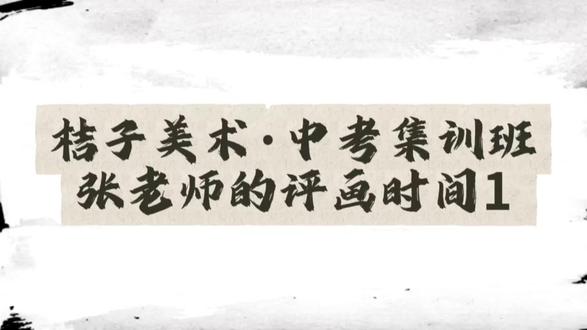 桔子美术·中考集训班
张老师的评画时间1